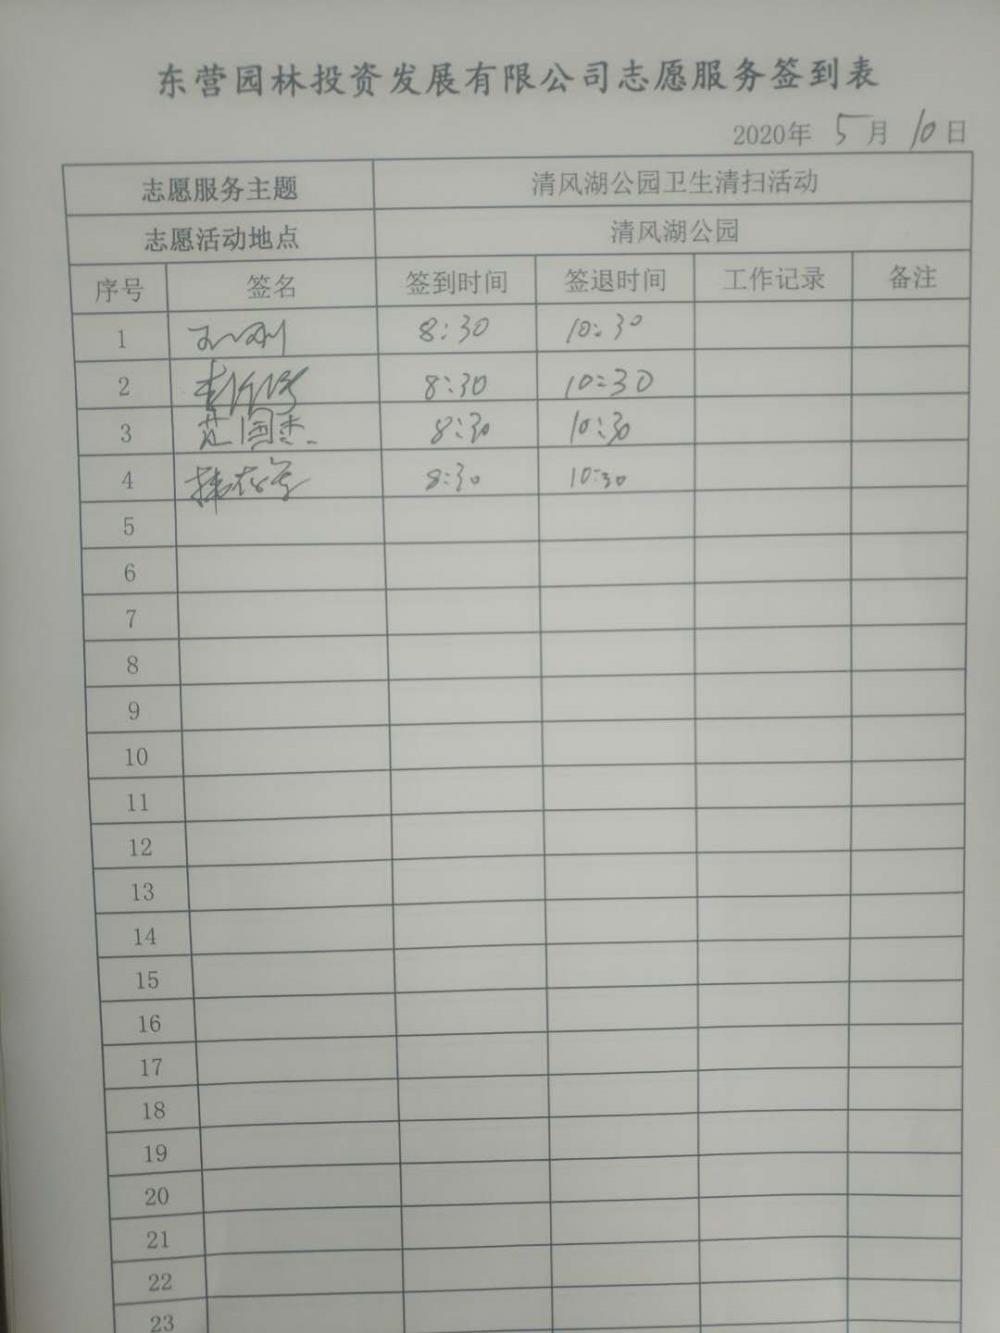 东营园林投资发展有限公司志愿服务签到表
2020年 5月 10日
志愿服务主题 清风湖公园卫生清扫活动
志愿活动地点 清风湖公园
序号 签名 签到时间 签退时间 工作记录 备注
1 8:30 10:30
2 8:30 10:30
3 范国杰 8:30 10:30
4 8:30 10:30
5
6
7
8
9
10
11
12
13
14
15
16
17
18
19
20
21
22
23